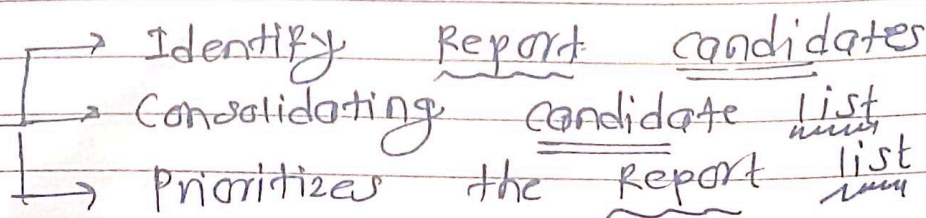 Identify Report candidates
Consolidating candidate list
Prioritizes the Report list